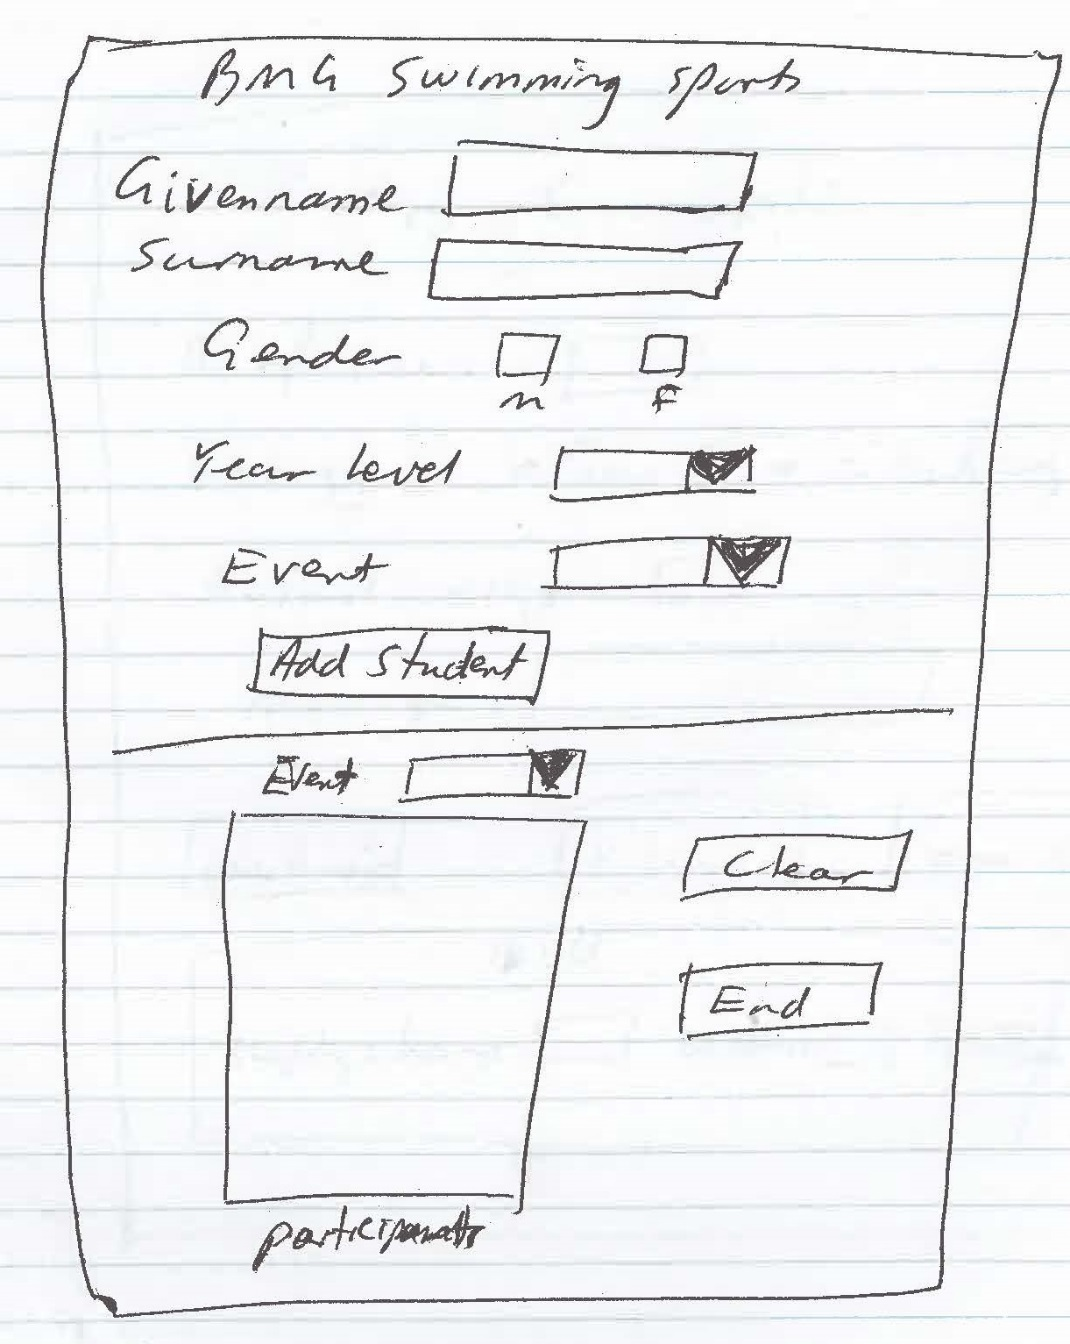 BMG Swimming sports
Givenname
Surname
Gender
M F
Year Level
Event
Add Student
Event
Clear
End
participants